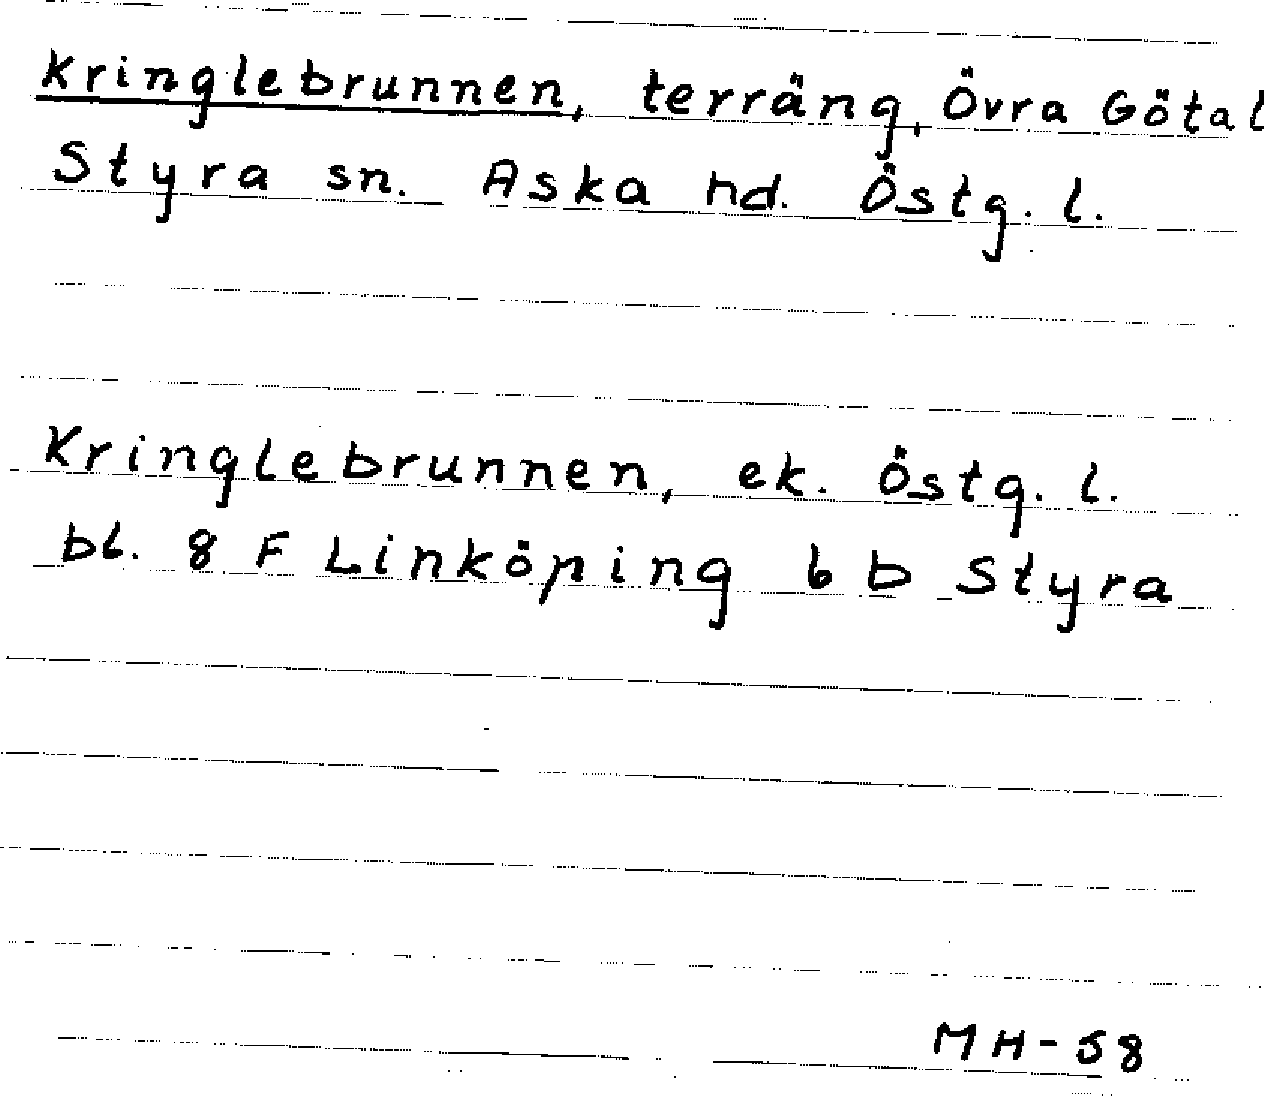 Kringlebrunnen, terräng, Övra Götal
Styra sn. Aska hd. Östg. l.
Kringlebrunnen, ek. Östg. l.
bl. 8 F Linköping 6 b Styra
MH-58